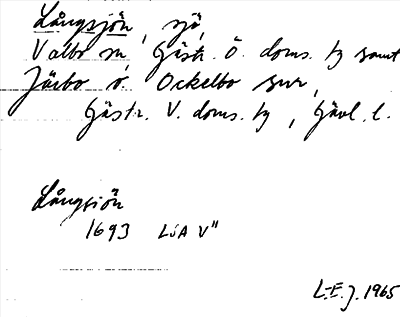 Långsjön, sjö,
Valbo sn, Gästr. Ö. doms. tg samt
Järbo o. Ockelbo snr,
Gästr. V. doms. tg, Gävl. l.
Långsiön
1693 LSA V"
L.E.J. 1965